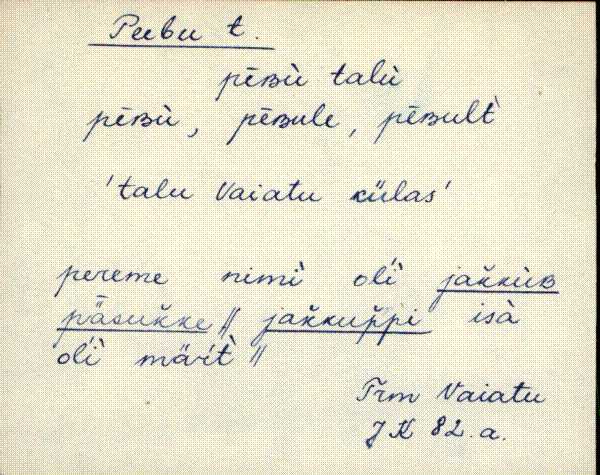 Peebu t.
pēʙù talù
pēʙù, pēʙule, pēʙult̀
'talu Vaiatu külas'
pereme nimì olì jak̆kùʙ
päsuk̆ke // jak̆kup̆pi isà
olì märìt̀ //
Trm Vaiatu
JK 82.a.